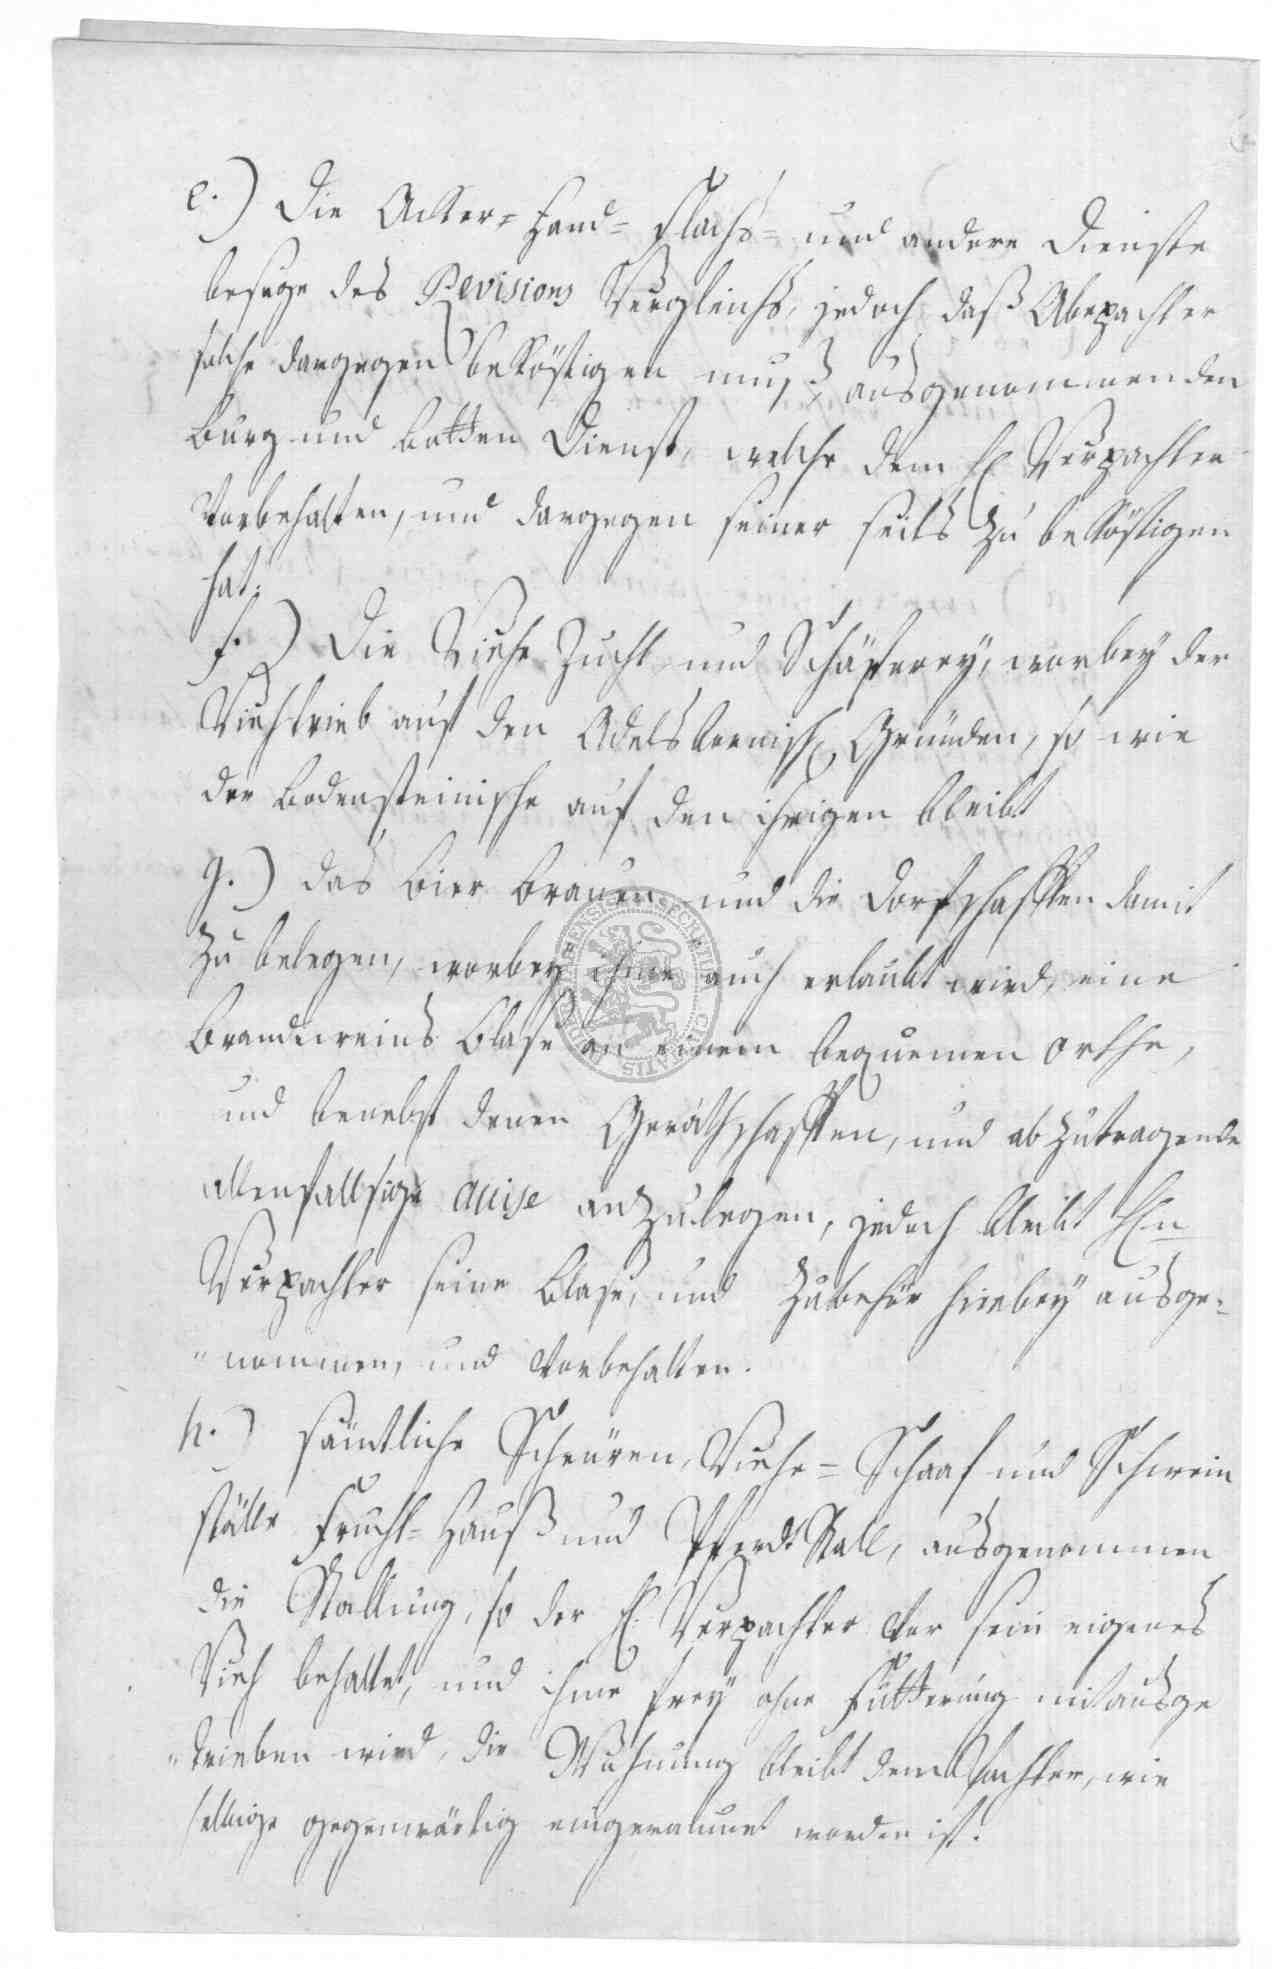 e.) Die Acker= Hand= Flachs= und andere Dienste
besage des Revisions Vergleichs, jedoch daß Abpachter
solche dargegen beköstigen muß, ausgenommen den
Burg und Botten Dienst, welche dem H. Verpachter
Vorbehalten, und dargegen seiner seits zu beköstigen
hat.
f.) Die Viehe Zucht und Schäferey, worbey der
Viehtrieb auf den Adelsbornisch Gründen, so wie
der Bodensteinische auf den ihrigen bleibt
g.) das Bier Brauen und die Dorfschafften damit
Zu belegen, worbey ihme auch erlaubt wird, eine
Brandweins Blase an einem bequemen Orthe,
und benebst denen Geräthschafften, und abzutragende
allenfallsige accise anzulegen, jedoch bleibt HEn
Verpachter seine Blase, und Zubehör hierbey ausge=
"nommen, und Vorbehalten.
h.) sämtliche Scheuren, Viehe= Schaaf und Schwein
ställe Frucht= Hauß und Pferdt Stall, ausgenommen
die Stallung, so der H. Verpachter vor sein eigenes
Vieh behaltet, und ihme frey ohne Fütterung mit ausge
"trieben wird, die Wohnung bleibt dem Pachter, wie
selbige gegenwärtig eingeraumet worden ist.